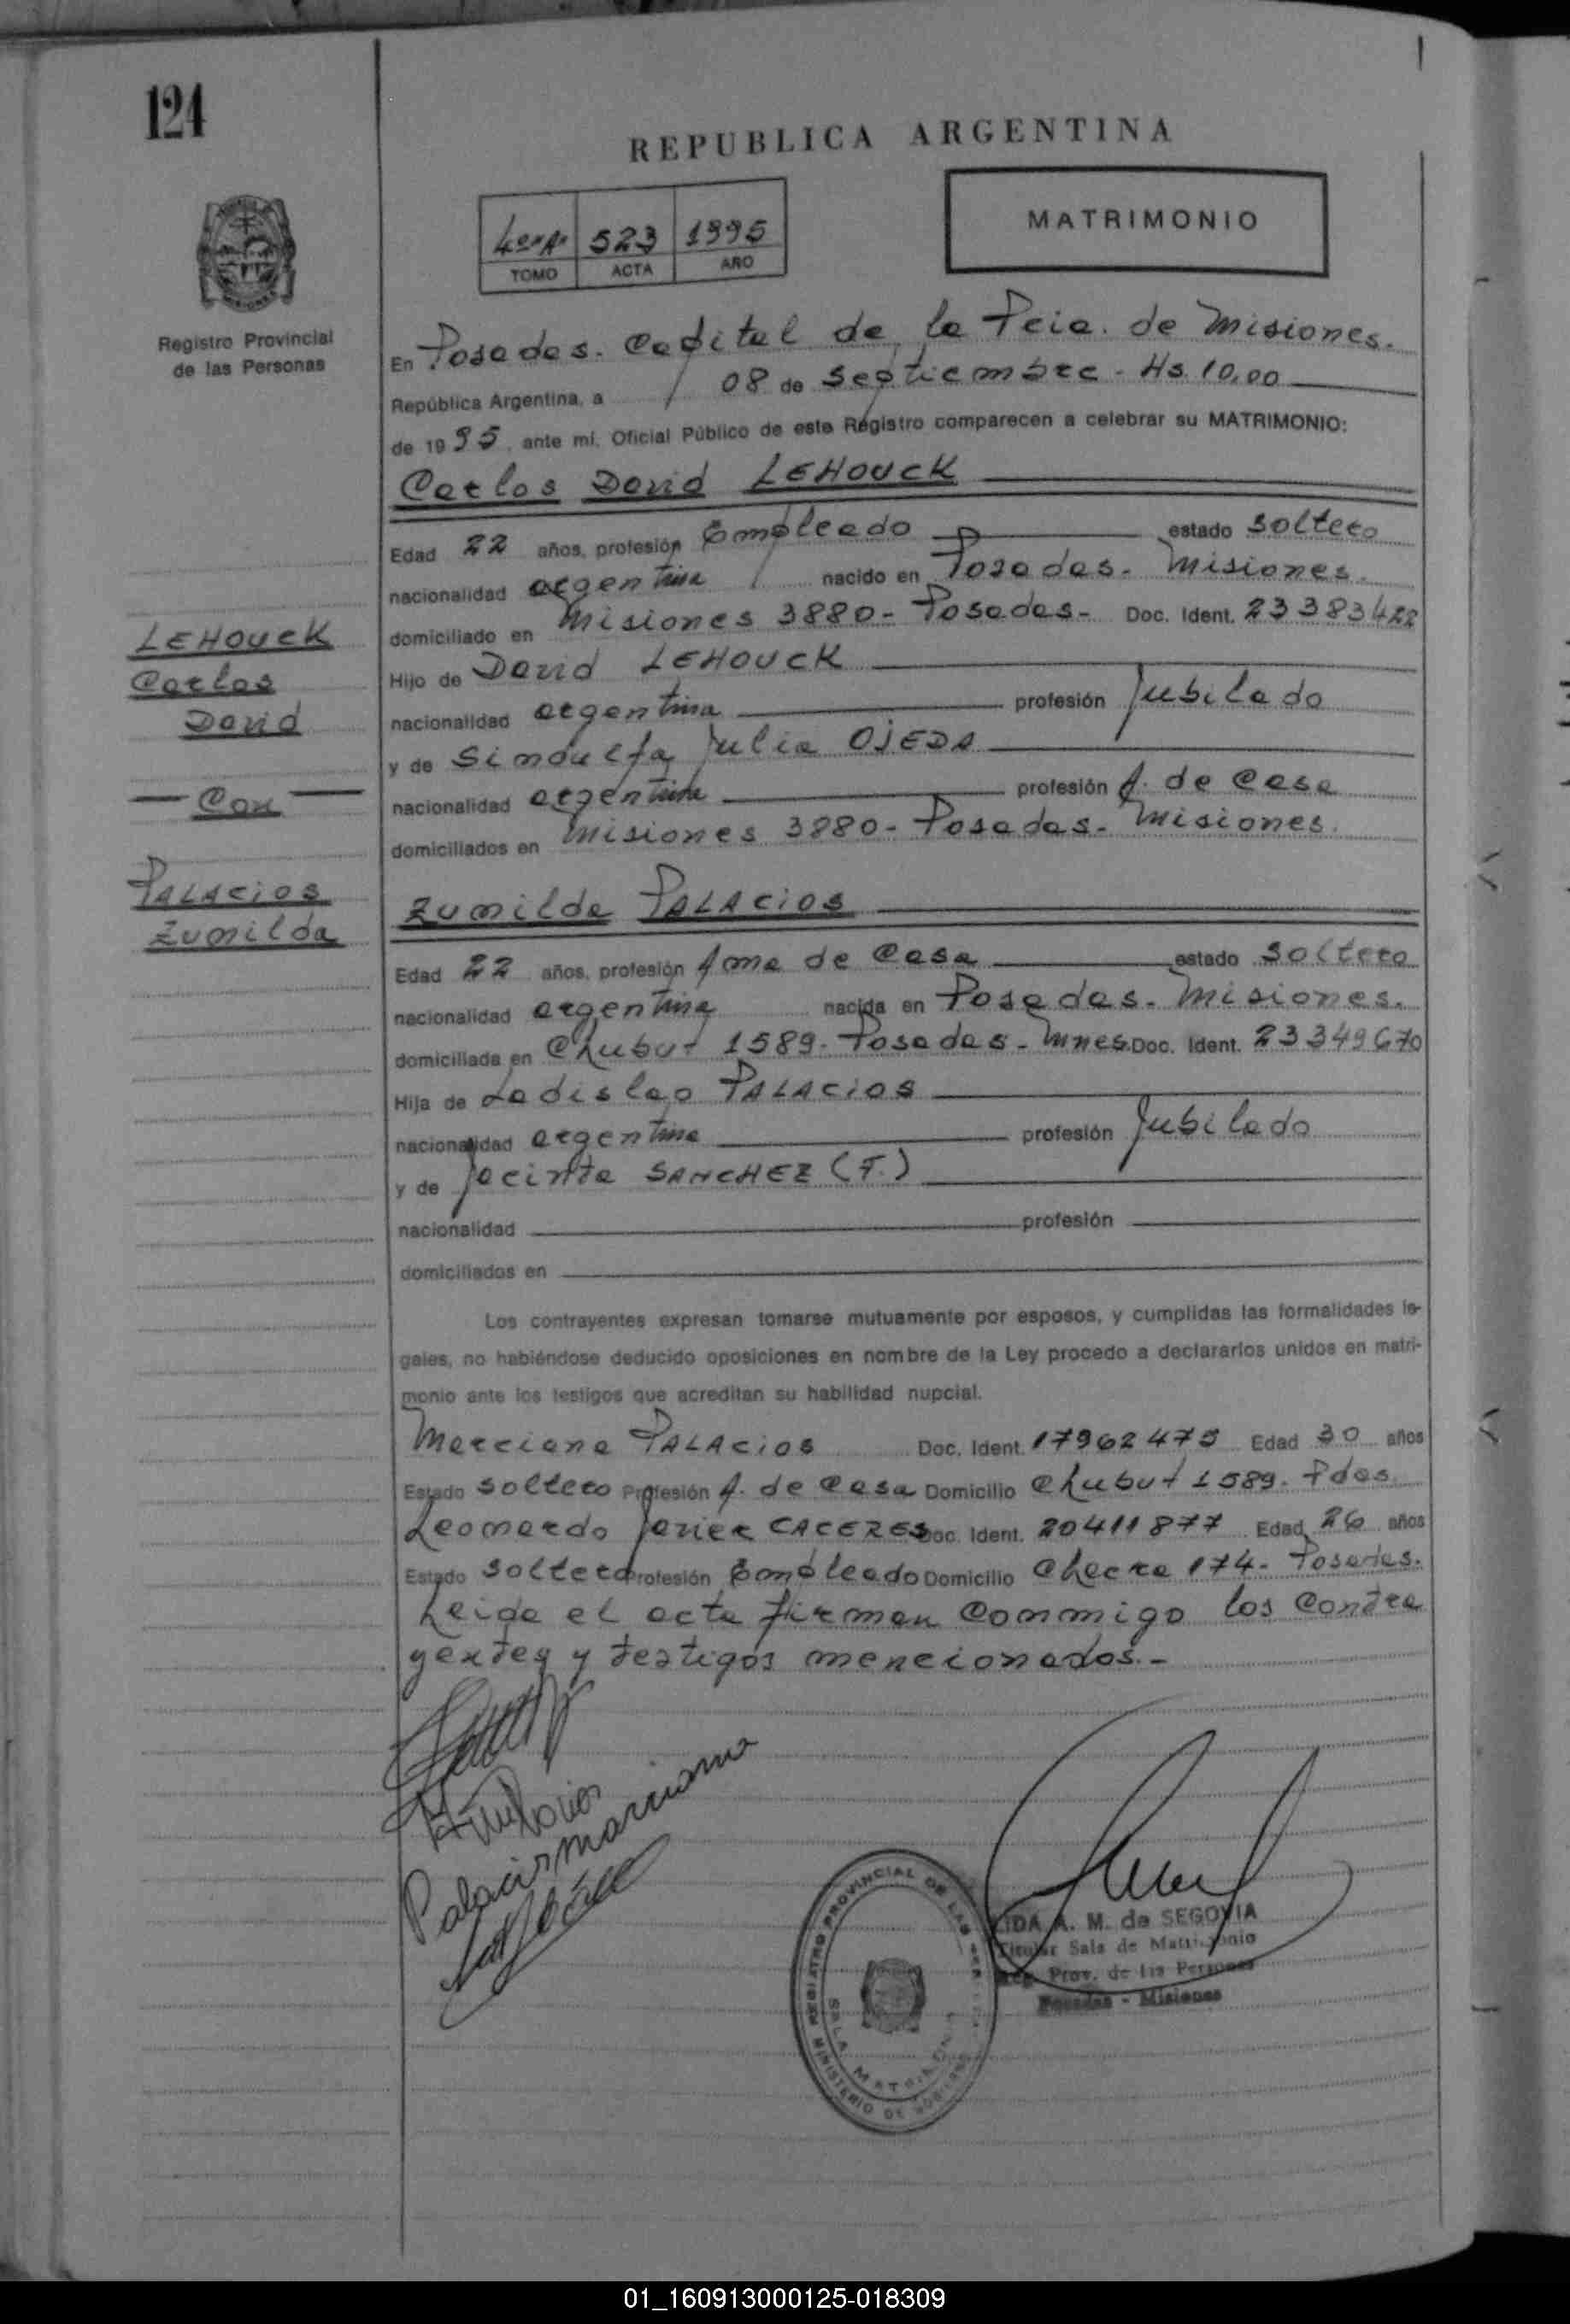 124
REPUBLICA ARGENTINA
4º "A" 523 1995
TOMO ACTA AÑO
MATRIMONIO
Registro Provincial
de las Personas
En Posadas. Capital de la Pcia. de Misiones.
República Argentina, a 08 de Septiembre - Hs. 10,00
de 1995, ante mí, Oficial Público de este Registro comparecen a celebrar su MATRIMONIO:
Carlos David LEHOUCK
Edad 22 años, profesión Empleado estado soltero
nacionalidad argentina nacido en Posadas - Misiones.
domiciliado en Misiones 3880 - Posadas - Doc. Ident. 23383422
Hijo de David LEHOUCK
nacionalidad argentina profesión Jubilado
y de Sindulfa Julia OJEDA
nacionalidad argentina profesión A. de Casa
domiciliados en Misiones 3880 - Posadas - Misiones.
LEHOUCK
Carlos
David
— Con —
PALACIOS
Zunilda
Zunilda PALACIOS
Edad 22 años, profesión Ama de Casa estado soltera
nacionalidad argentina nacida en Posadas - Misiones.
domiciliada en Chubut 1589 - Posadas - Mnes. Doc. Ident. 23349670
Hija de Ladislao PALACIOS
nacionalidad argentina profesión Jubilado
y de Jacinta SANCHEZ (F.)
nacionalidad profesión
domiciliados en
Los contrayentes expresan tomarse mutuamente por esposos, y cumplidas las formalidades le-
gales, no habiéndose deducido oposiciones en nombre de la Ley procedo a declararlos unidos en matri-
monio ante los testigos que acreditan su habilidad nupcial.
Marciana PALACIOS Doc. Ident. 17962475 Edad 30 años
Estado soltera Profesión A. de Casa Domicilio Chubut 1589 - Pdas.
Leonardo Javier CACERES Doc. Ident. 20411877 Edad 26 años
Estado soltero Profesión Empleado Domicilio Chacra 174 - Posadas.
Leida el acta firman conmigo los contra
yentes y testigos mencionados.-
Palacios marciana
LIDA A. M. de SEGOVIA
Titular Sala de Matrimonio
Reg. Prov. de las Personas
Posadas - Misiones
REGISTRO PROVINCIAL DE LAS PERSONAS
SALA MATRIMONIO
MINISTERIO DE GOBIERNO
01_160913000125-018309